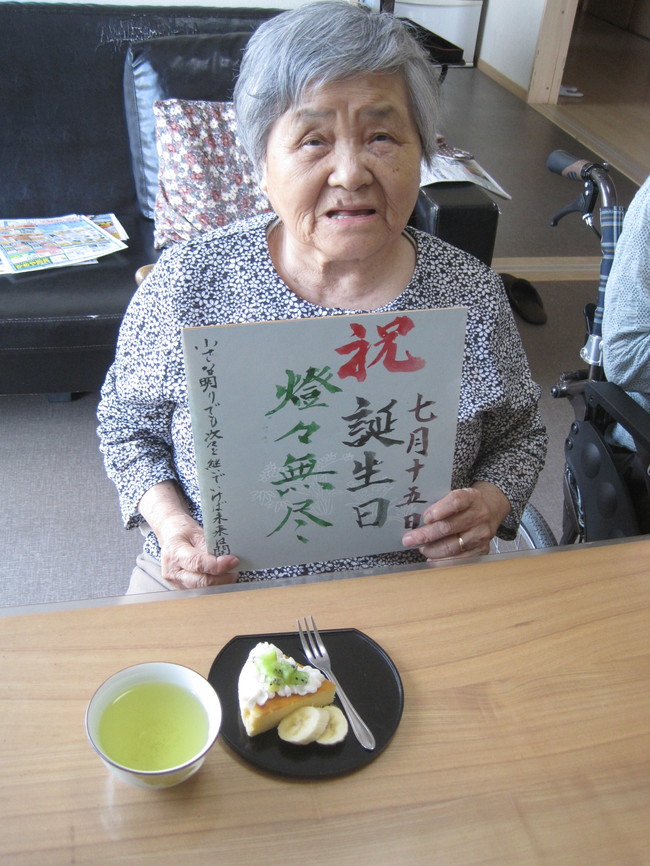 七月十五日
祝 誕生日
燈々無尽
小さな明りでも次々と継いでいけば未来は